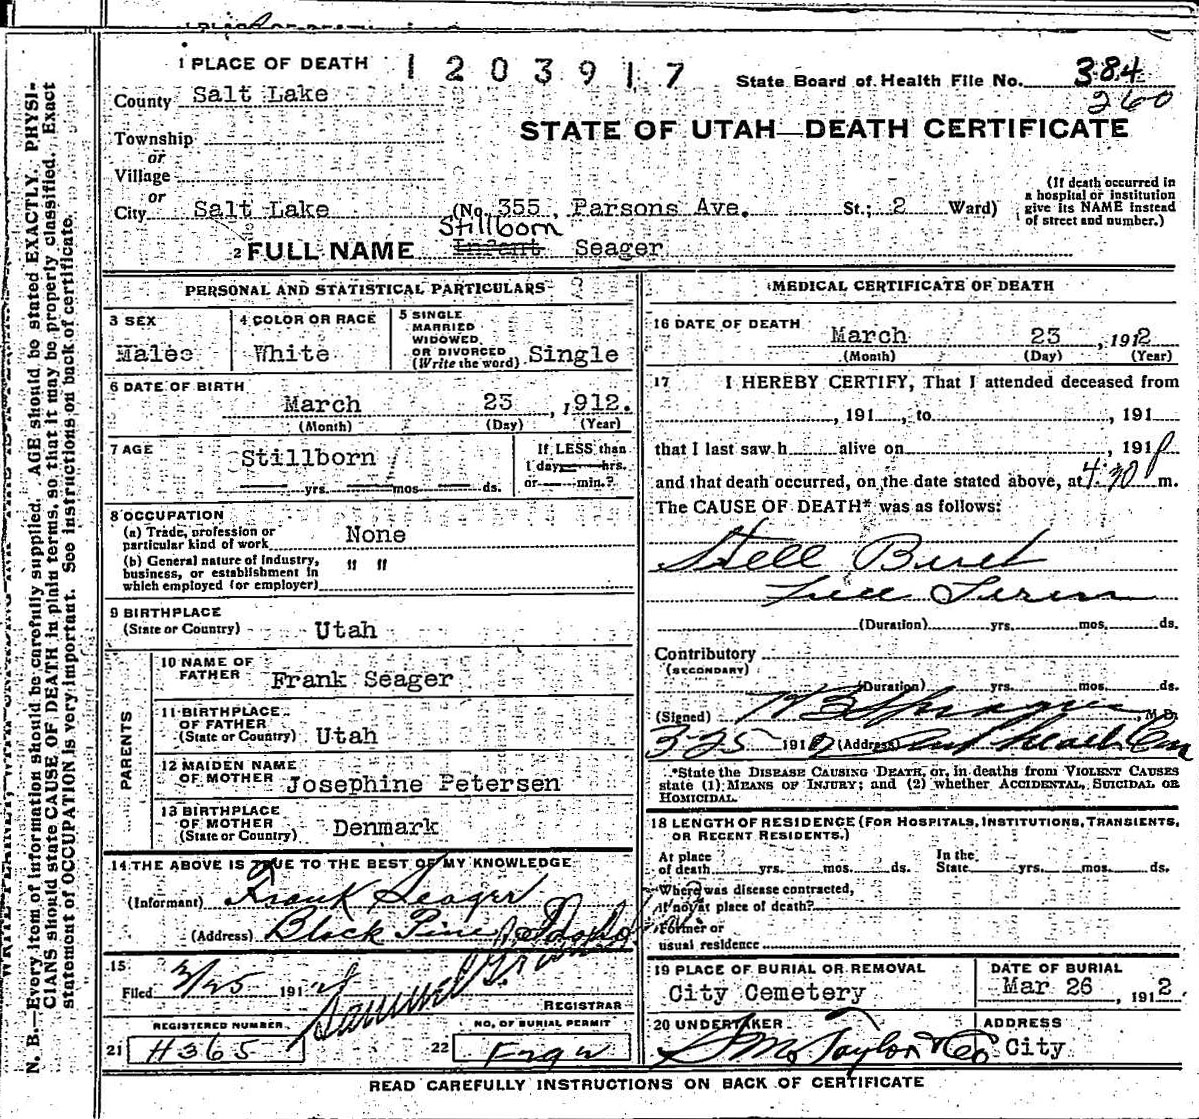 1 PLACE OF DEATH 1203917 State Board of Health File No. 384
260
County Salt Lake
STATE OF UTAH—DEATH CERTIFICATE
Township
or
Village
or
City Salt Lake (No. 355, Parsons Ave. St.; 2 Ward)
(If death occurred in a hospital or institution give its NAME instead of street and number.)
Stillborn
2 FULL NAME Infant Seager
PERSONAL AND STATISTICAL PARTICULARS
3 SEX
Male
4 COLOR OR RACE
White
5 SINGLE
MARRIED
WIDOWED
OR DIVORCED
(Write the word) Single
6 DATE OF BIRTH
March 23, 1912.
(Month) (Day) (Year)
7 AGE
Stillborn
yrs. mos. ds.
If LESS than
1 day hrs.
or min.?
8 OCCUPATION
(a) Trade, profession or
particular kind of work None
(b) General nature of industry,
business, or establishment in
which employed (or employer) " "
9 BIRTHPLACE
(State or Country) Utah
PARENTS
10 NAME OF
FATHER Frank Seager
11 BIRTHPLACE
OF FATHER
(State or Country) Utah
12 MAIDEN NAME
OF MOTHER Josephine Petersen
13 BIRTHPLACE
OF MOTHER
(State or Country) Denmark
14 THE ABOVE IS TRUE TO THE BEST OF MY KNOWLEDGE
(Informant) Frank Seager
(Address) Black Pine, Idaho
15
Filed 3/25 191
REGISTRAR
REGISTERED NUMBER
21 H365
NO. OF BURIAL PERMIT
22
MEDICAL CERTIFICATE OF DEATH
16 DATE OF DEATH
March 23, 1912
(Month) (Day) (Year)
17 I HEREBY CERTIFY, That I attended deceased from
, 191 , to , 191
that I last saw h alive on , 191
and that death occurred, on the date stated above, at 4:30 P m.
The CAUSE OF DEATH* was as follows:
Still Birth
Full Term
(Duration) yrs. mos. ds.
Contributory
(SECONDARY)
(Duration) yrs. mos. ds.
(Signed) Sprague M.D.
3-25 1912 (Address)
*State the DISEASE CAUSING DEATH, or, in deaths from VIOLENT CAUSES
state (1) MEANS OF INJURY; and (2) whether ACCIDENTAL, SUICIDAL OR
HOMICIDAL.
18 LENGTH OF RESIDENCE (FOR HOSPITALS, INSTITUTIONS, TRANSIENTS,
OR RECENT RESIDENTS.)
At place
of death yrs. mos. ds.
In the
State yrs. mos. ds.
Where was disease contracted,
if not at place of death?
Former or
usual residence
19 PLACE OF BURIAL OR REMOVAL
City Cemetery
DATE OF BURIAL
Mar 26, 1912.
20 UNDERTAKER
S. M. Taylor & Co
ADDRESS
City
READ CAREFULLY INSTRUCTIONS ON BACK OF CERTIFICATE
N. B.—Every item of information should be carefully supplied. AGE should be stated EXACTLY. PHYSI-
CIANS should state CAUSE OF DEATH in plain terms, so that it may be properly classified. Exact
statement of OCCUPATION is very important. See instructions on back of certificate.